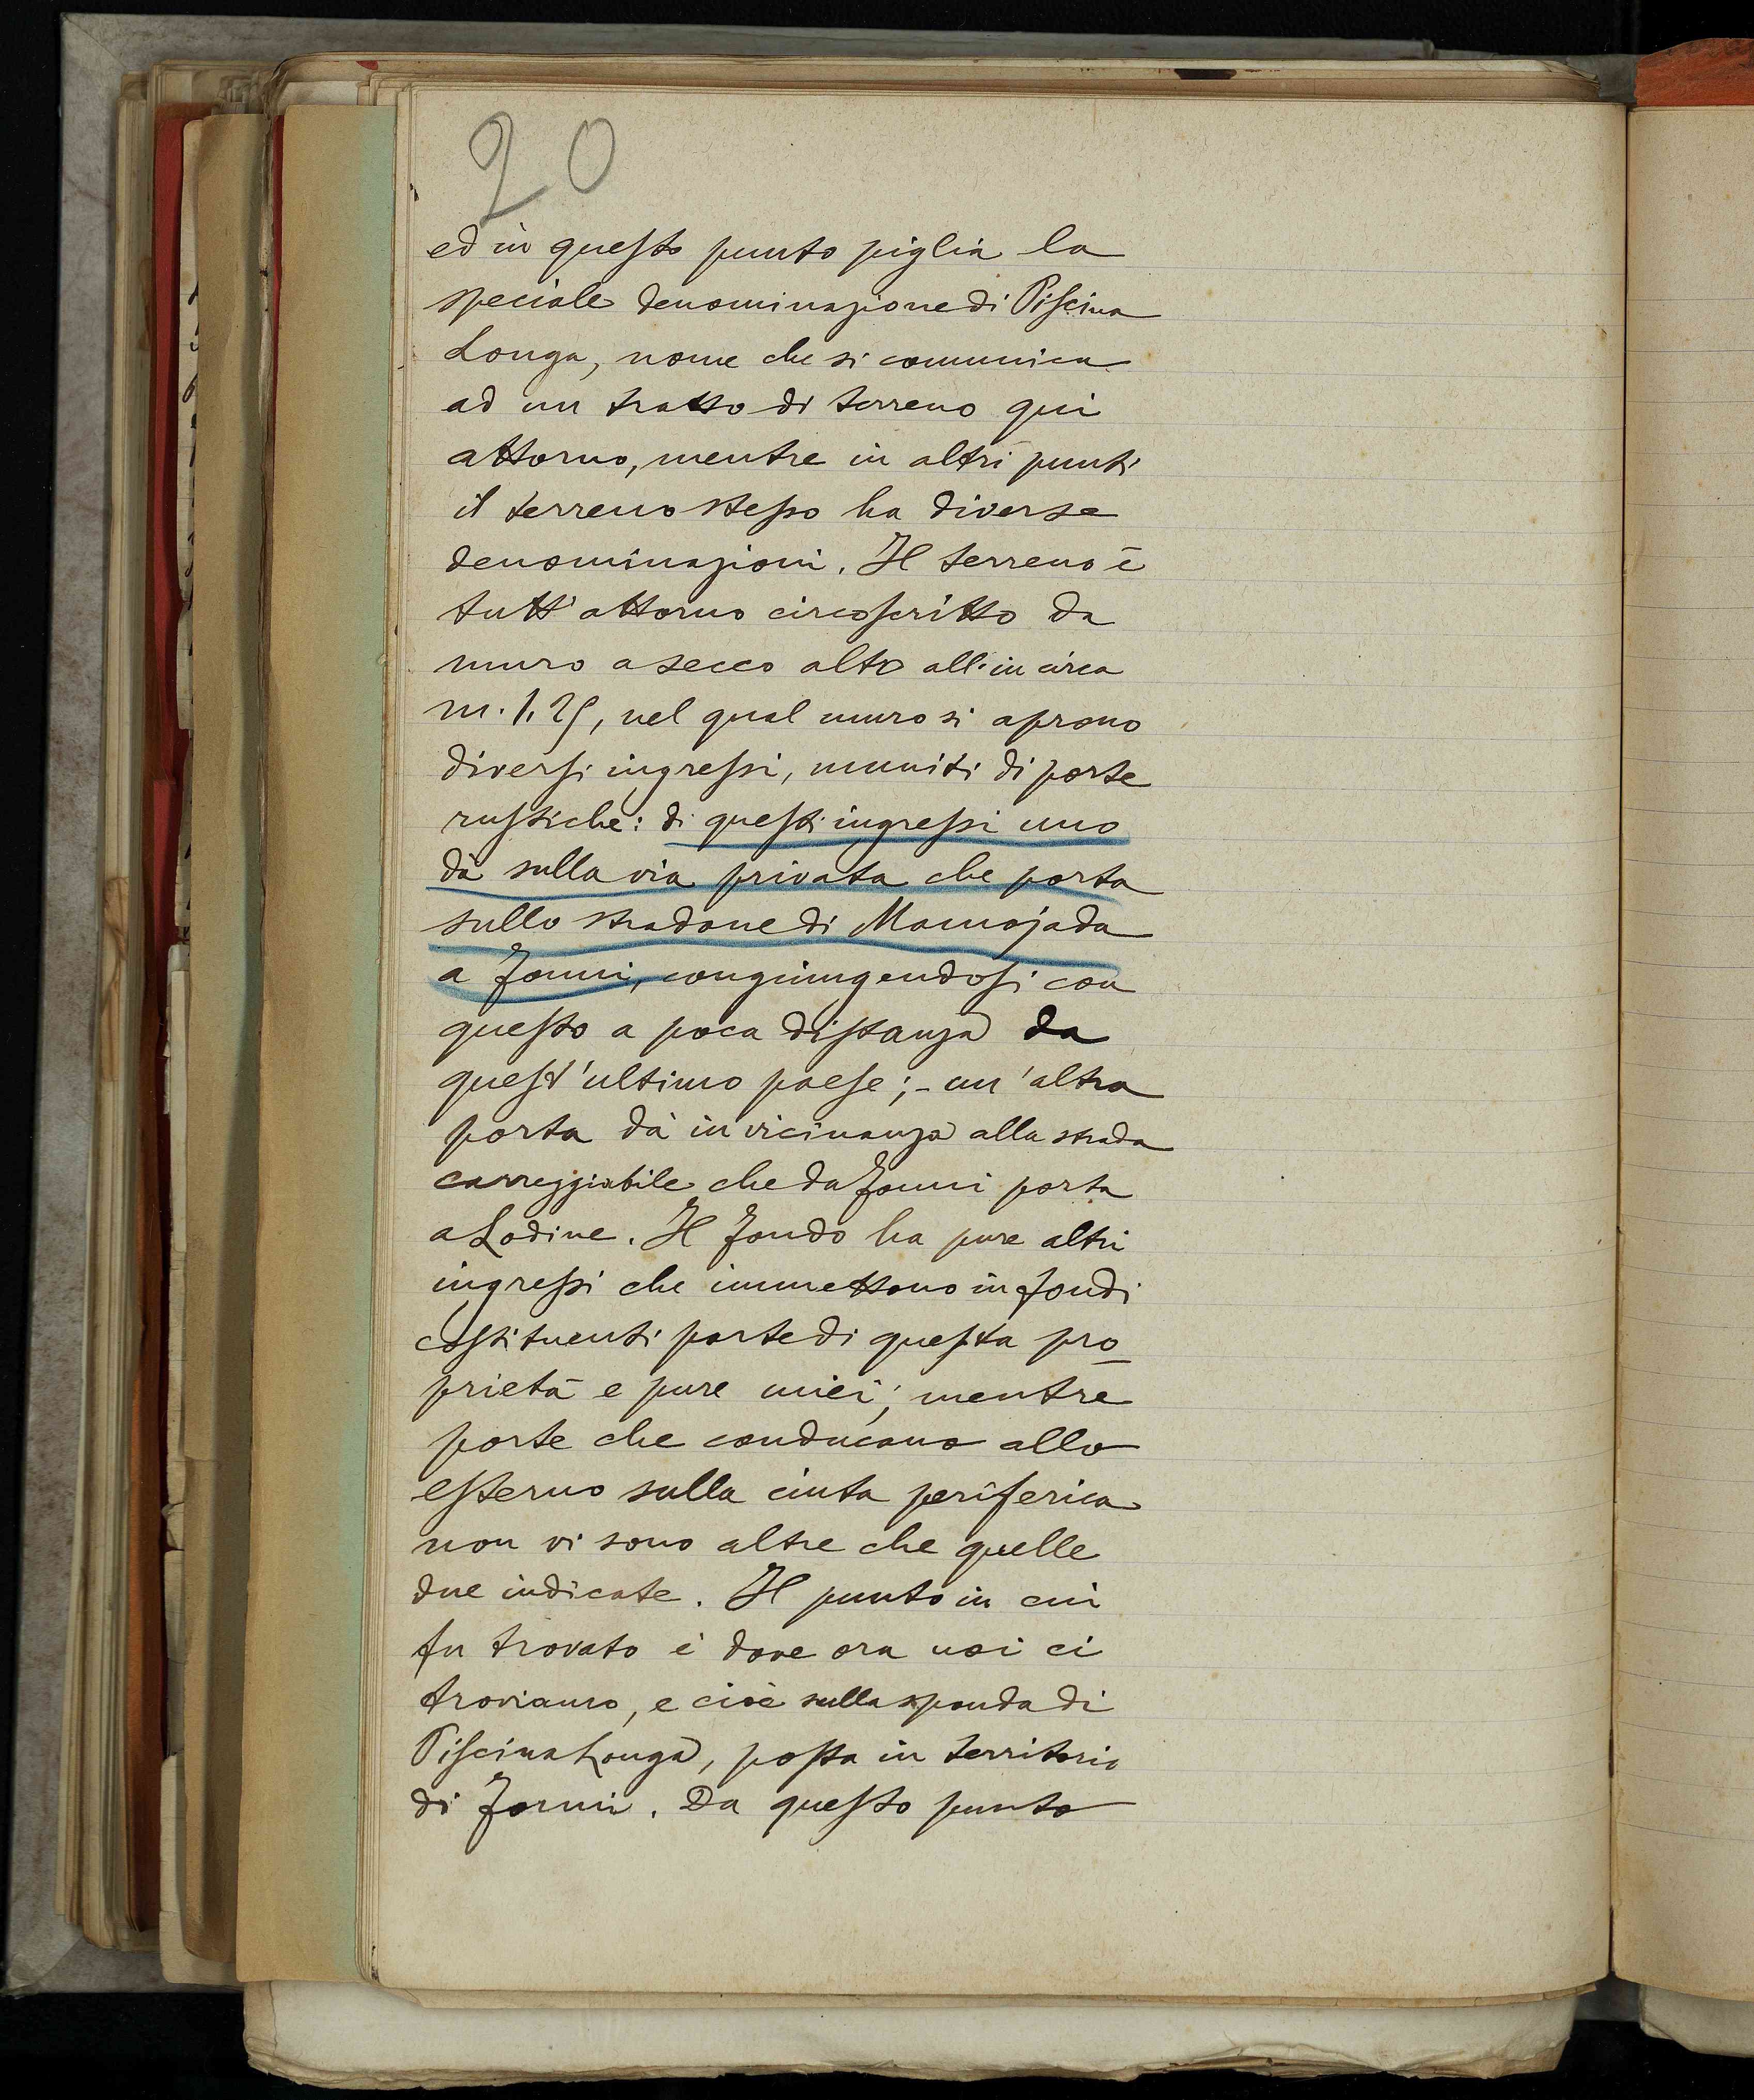 20
ed in questo punto piglia la
speciale denominazione di Piscina
Longa, nome che si comunica
ad un tratto di terreno qui
attorno, mentre in altri punti
il terreno stesso ha diverse
denominazioni. Il terreno è
tutt'attorno circoscritto da
muro a secco alto all'in circa
m. 1.25, nel qual muro si aprono
diversi ingressi, muniti di porte
rustiche: di questi ingressi uno
dà sulla via privata che porta
sullo stradone di Mamojada
a Fonni, congiungendosi con
questo a poca distanza da
quest'ultimo paese; - un'altra
porta dà in vicinanza alla strada
carreggiabile che da Fonni porta
a Lodine. Il fondo ha pure altri
ingressi che immettono in fondi
costituenti parte di questa pro_
prietà e pure miei; mentre
porte che conducano allo
esterno sulla cinta periferica
non vi sono altre che quelle
due indicate. Il punto in cui
fu trovato è dove ora noi ci
troviamo, e cioè sulla sponda di
Piscina Longa, posta in territorio
di Fonni. Da questo punto